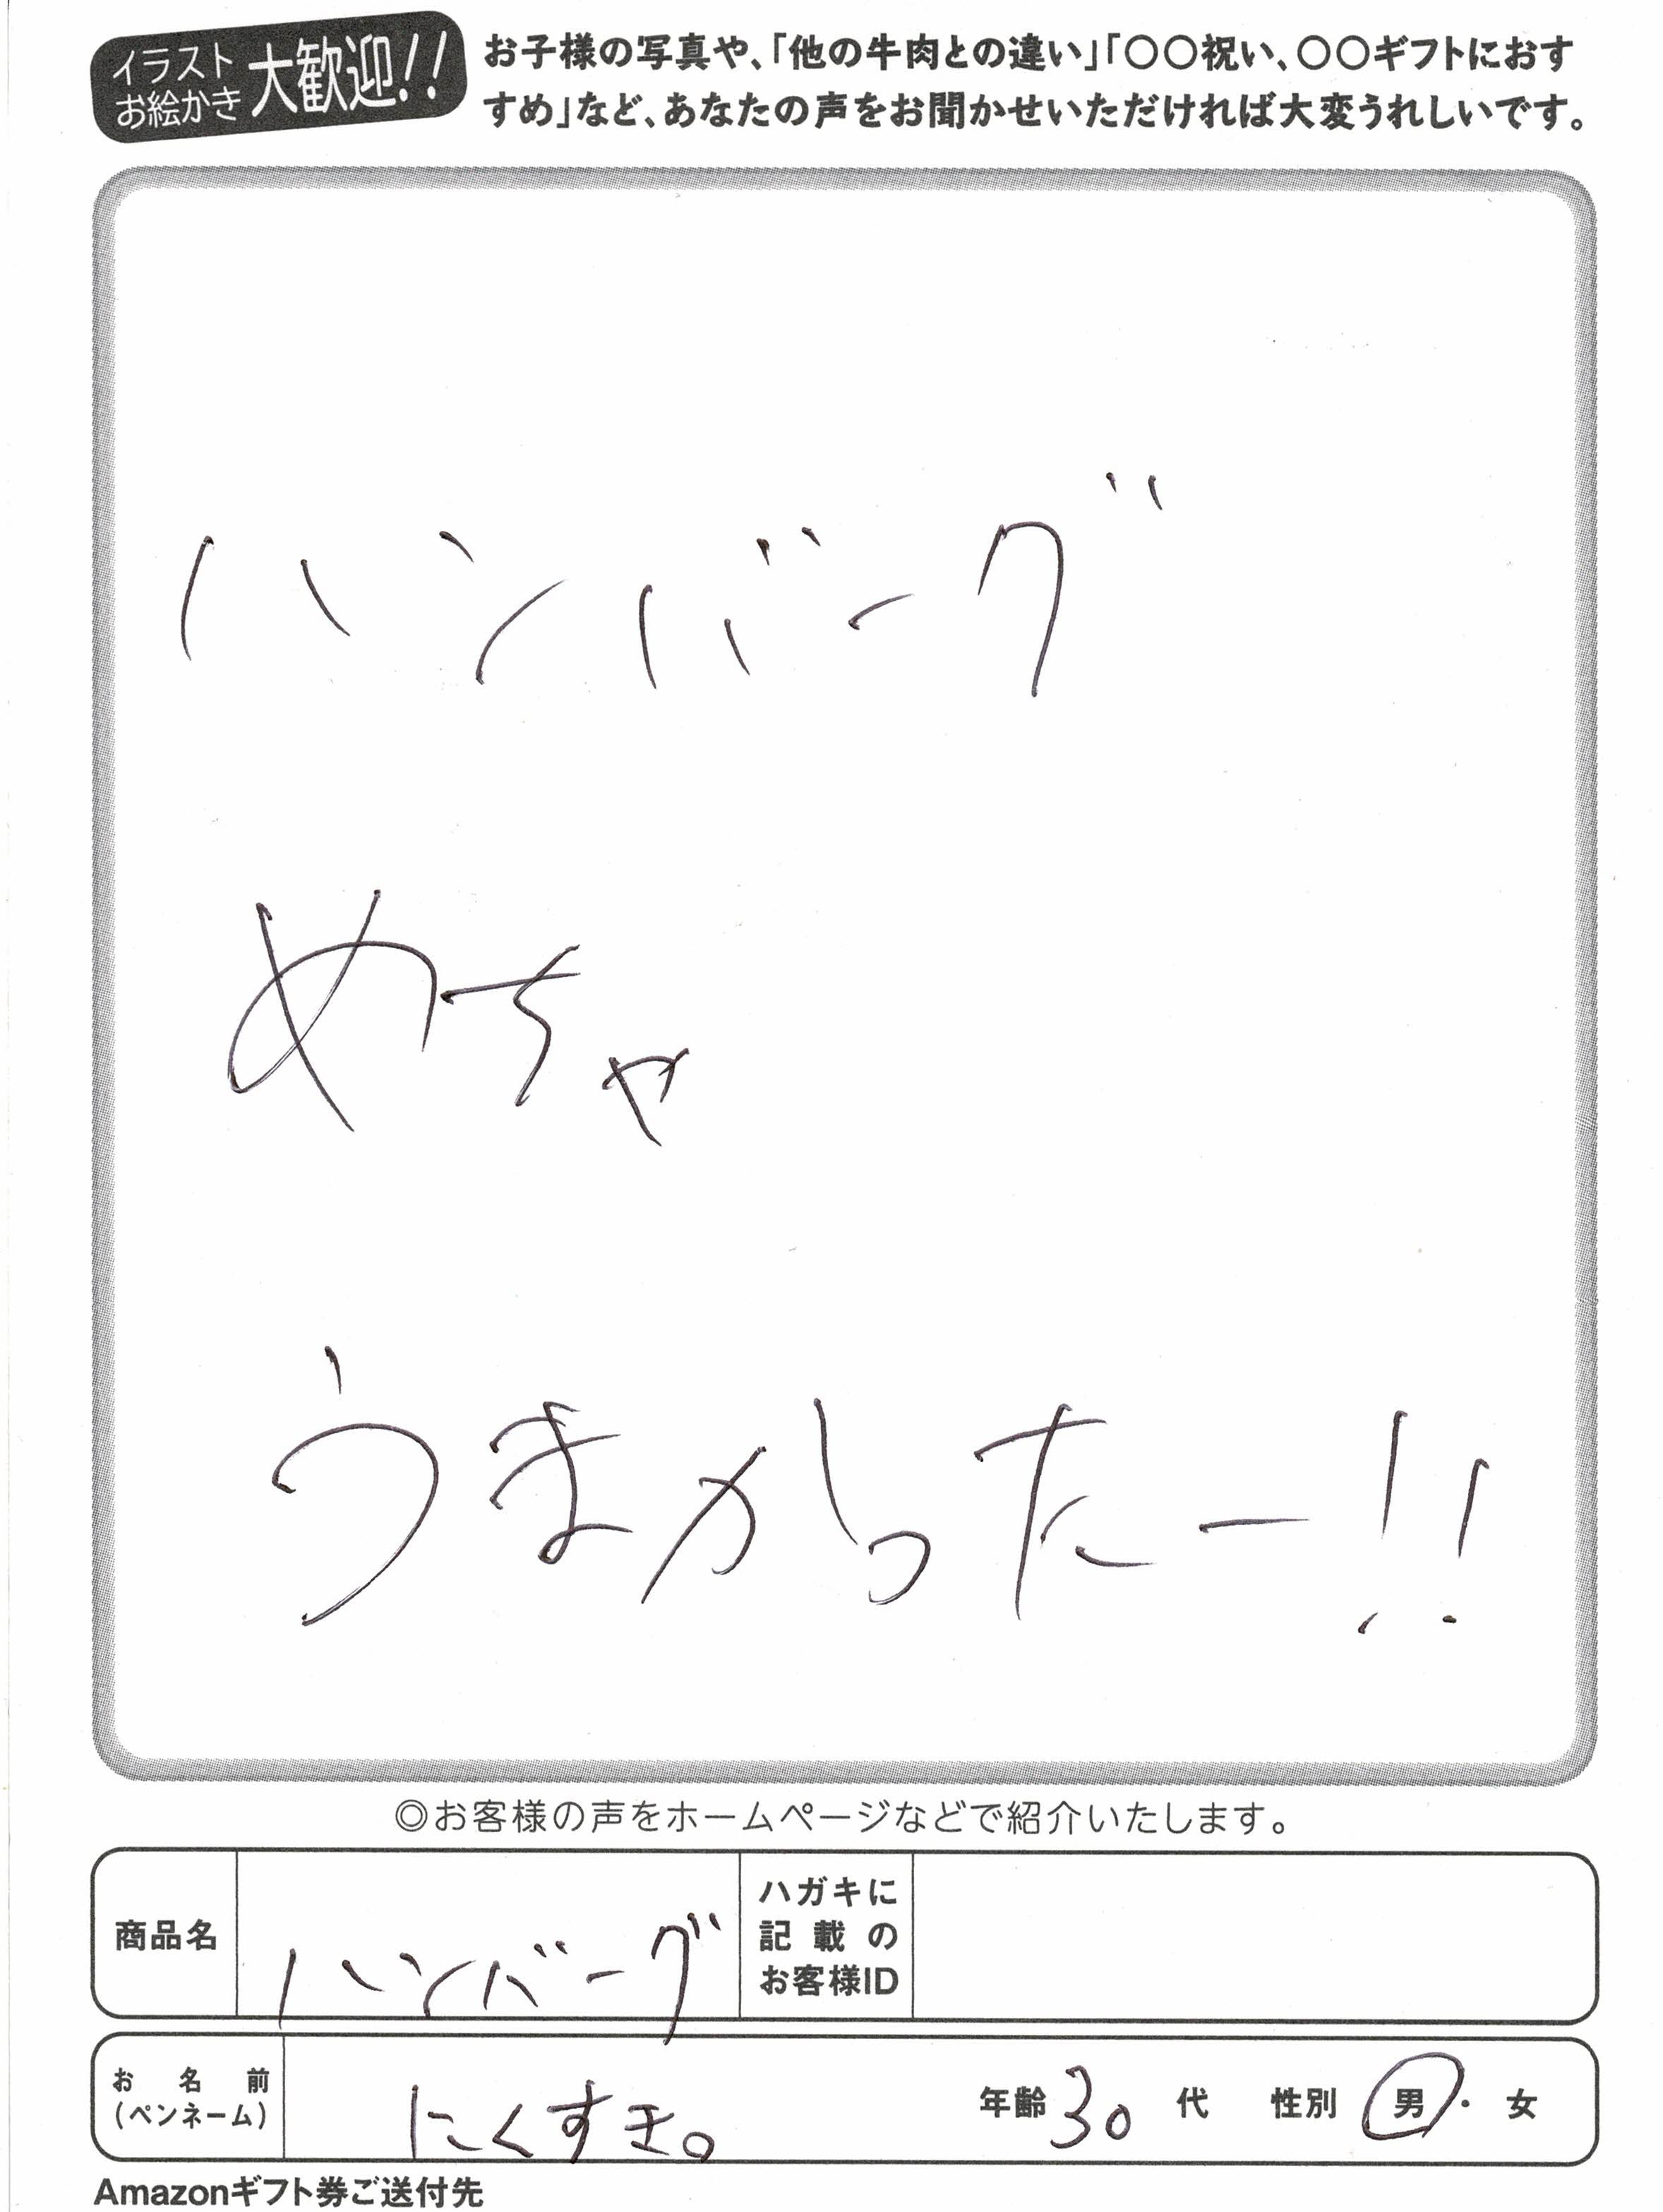 イラスト
お絵かき
大歓迎!!
お子様の写真や、「他の牛肉との違い」「〇〇祝い、〇〇ギフトにおす
すめ」など、あなたの声をお聞かせいただければ大変うれしいです。
ハンバーグ
めちゃ
うまかったー!!
◎お客様の声をホームページなどで紹介いたします。
商品名 ハンバーグ
ハガキに
記載の
お客様ID
お名前
(ペンネーム) にくすき。 年齢 30 代 性別 男・女
Amazonギフト券ご送付先